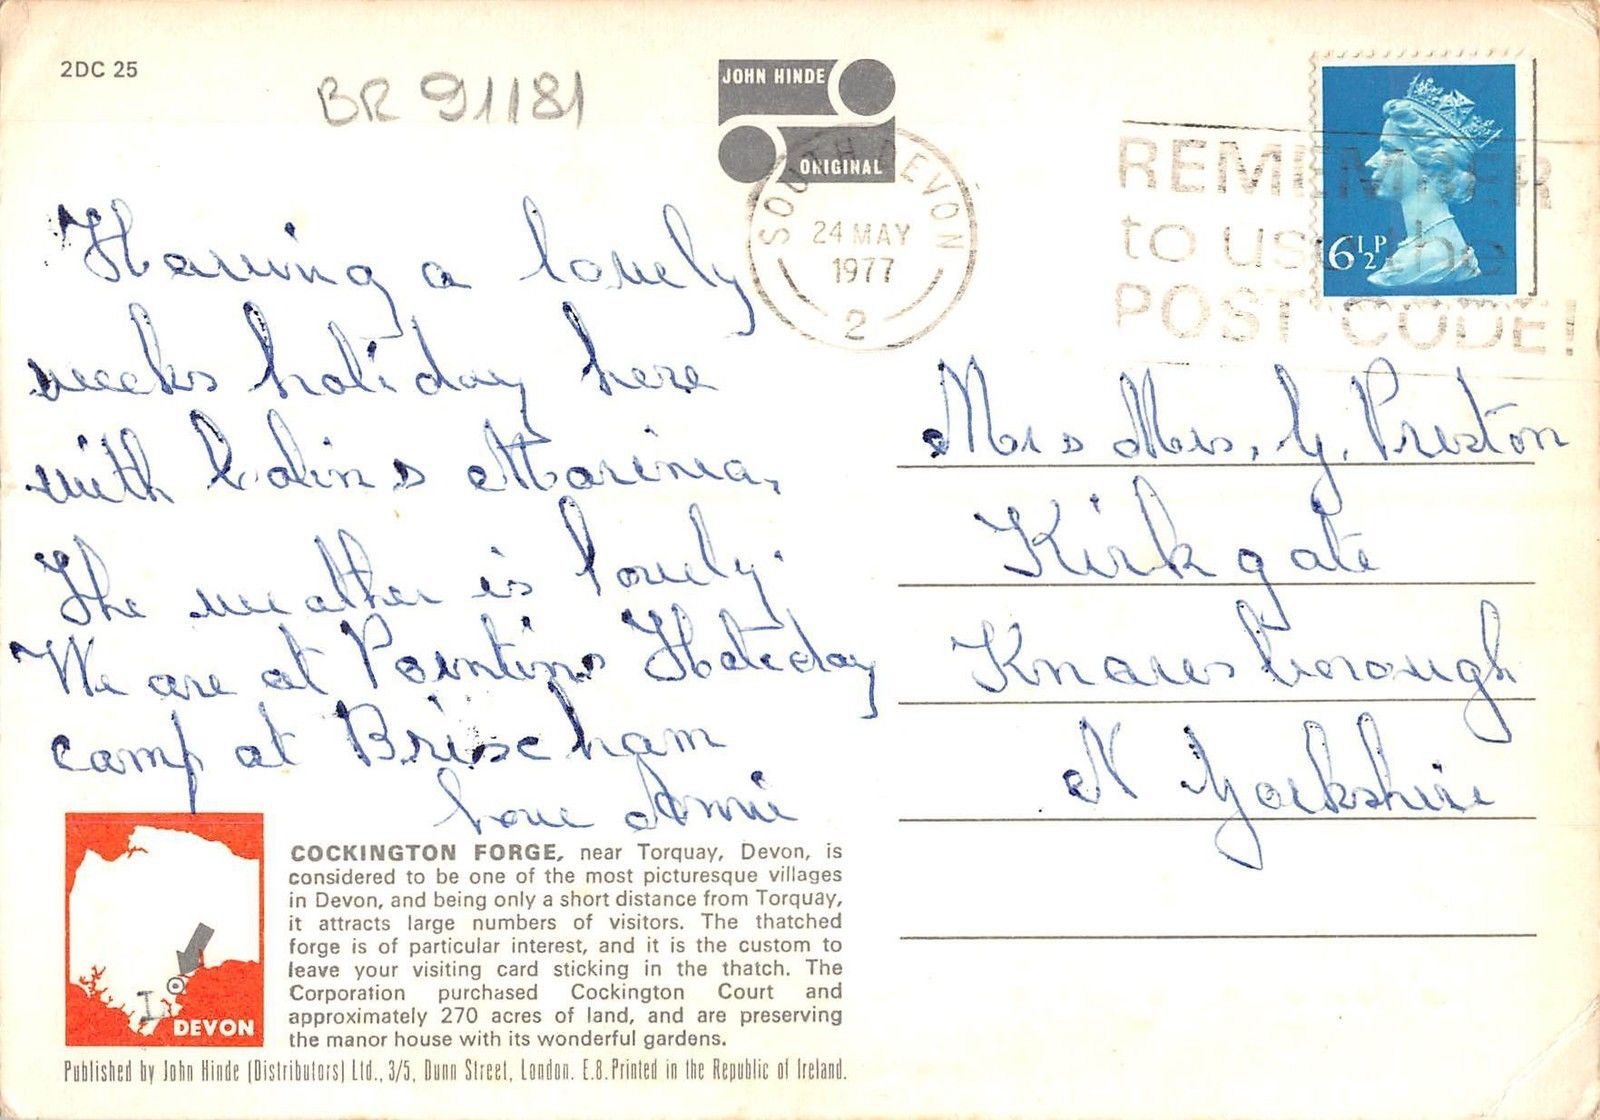 2DC 25
BR 91181
JOHN HINDE
ORIGINAL
SOUTH DEVON
24 MAY
1977
2
REMEMBER
to use the
POST CODE!
6½P
Having a lovely
weeks holiday here
with Colin & Marina,
The weather is lovely.
We are at Pontins Holiday
camp at Brixcham
love Annie
Mr & Mrs, G. Preston
Kirkgate
Knaresborough
N Yorkshire
DEVON
COCKINGTON FORGE, near Torquay, Devon, is
considered to be one of the most picturesque villages
in Devon, and being only a short distance from Torquay,
it attracts large numbers of visitors. The thatched
forge is of particular interest, and it is the custom to
leave your visiting card sticking in the thatch. The
Corporation purchased Cockington Court and
approximately 270 acres of land, and are preserving
the manor house with its wonderful gardens.
Published by John Hinde (Distributors) Ltd., 3/5, Dunn Street, London. E.8. Printed in the Republic of Ireland.